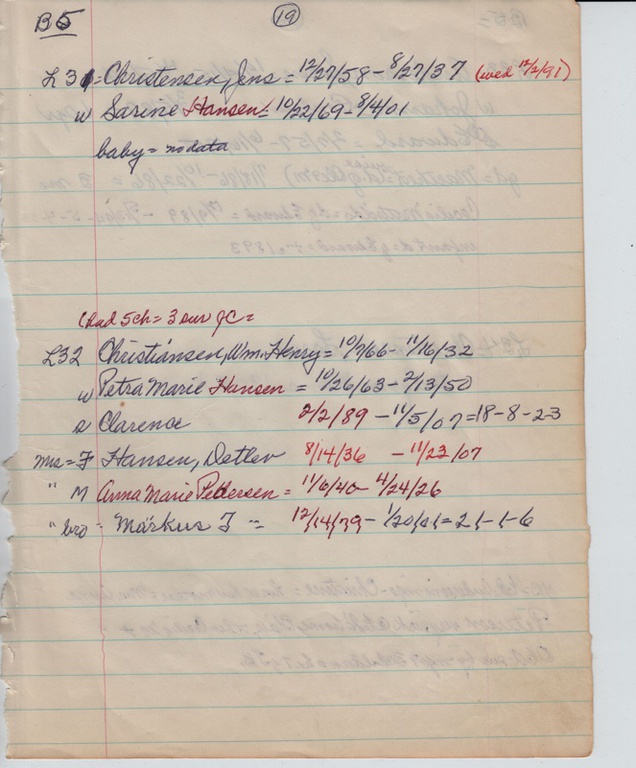 B5 19
L31 = Christensen, Jens = 12/27/58 - 8/27/37 (wed 12/2/91)
w Sarine Hansen = 10/22/69 - 8/4/01
baby = no data
(had 5ch = 3 sur gC =
L32 Christiansen, Wm. Henry = 10/7/66 - 11/16/32
w Petra Marie Hansen = 10/26/63 - 2/13/50
s Clarence 2/2/89 - 11/5/07 = 18-8-23
mrs = F Hansen, Detlev 8/14/36 - 11/23/07
" M Anna Marie Petersen = 11/6/40 - 4/24/26
" bro - Markus F = 12/14/79 - 1/20/01 = 21-1-6